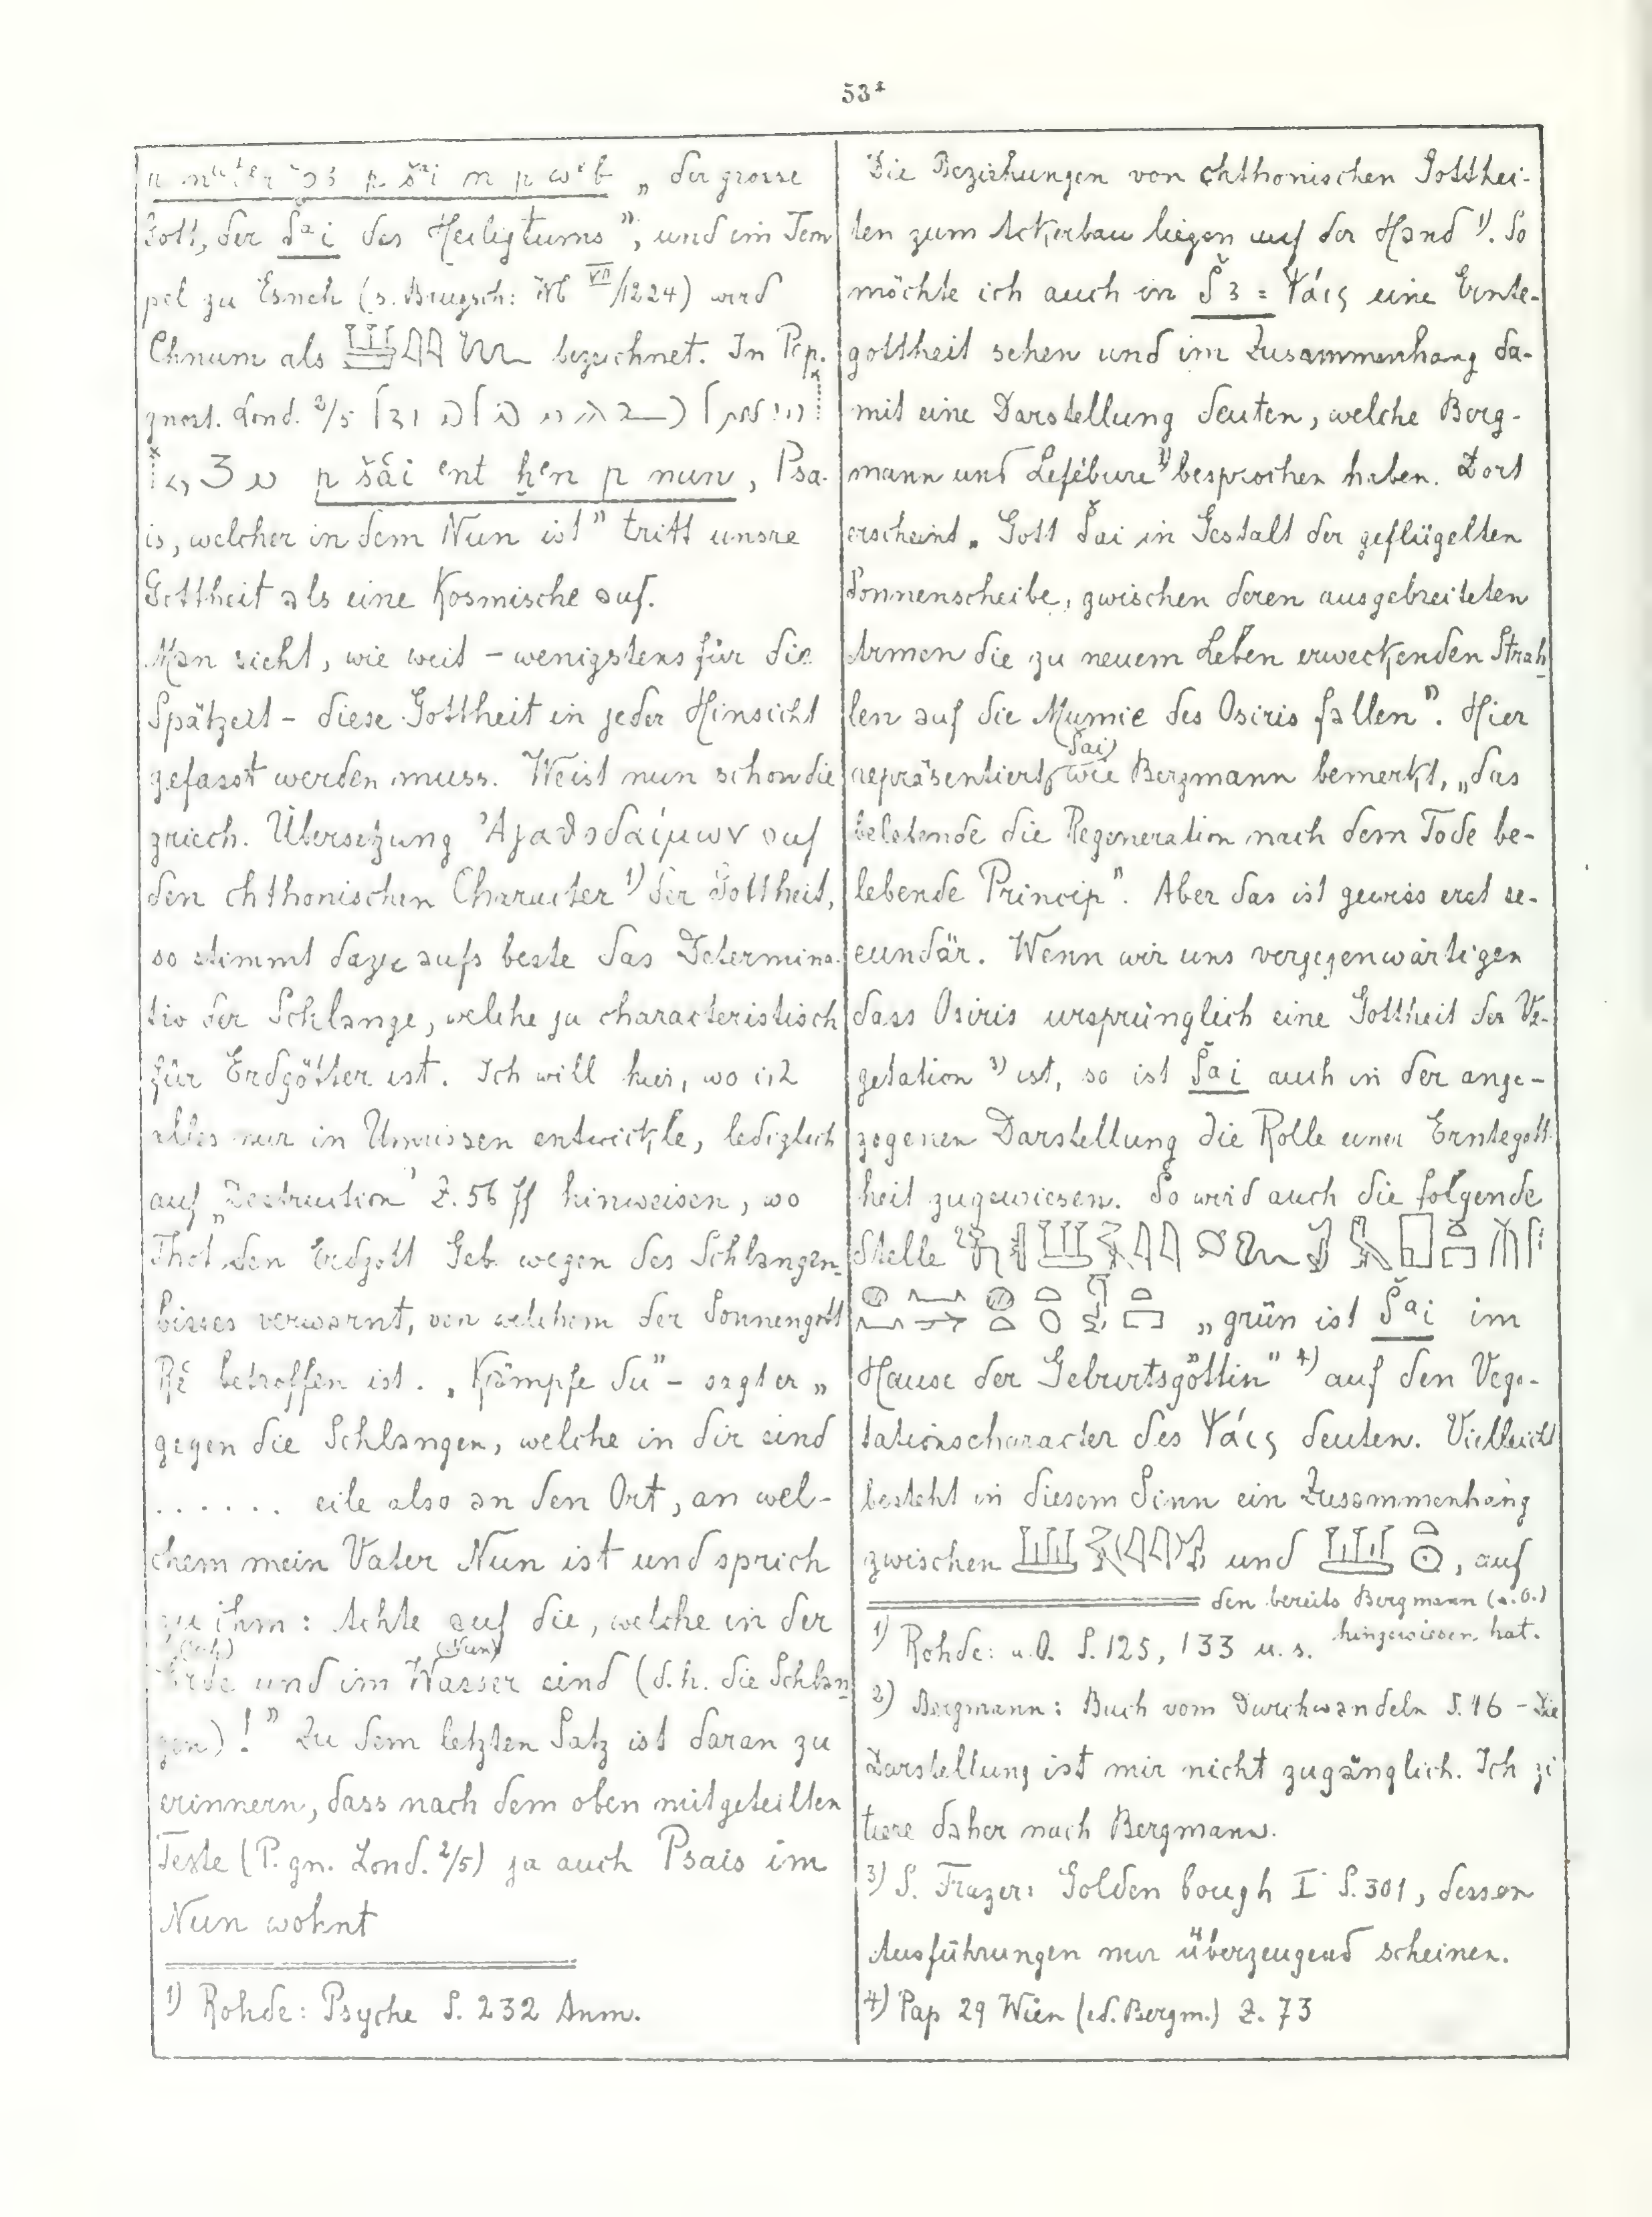 53*
p nuter ꜥꜣ p šai m p wꜥb „der grosse
Gott, der šai des Heiligtums”, und im Tem
pel zu Esneh (s. Brugsch: Wb VII/1224) wird
Chnum als bezeichnet. In Pap.
gnost. Lond. 2/5
p šaî ent ḫen p nun, Psa-
is, welcher in dem Nun ist” tritt unsre
Gottheit als eine Kosmische auf.
Man sieht, wie weit – wenigstens für die
Spätzeit – diese Gottheit in jeder Hinsicht
gefasst werden muss. Weist nun schon die
griech. Übersetzung Ἀγαθοδαίμων auf
den chthonischen Character ¹) der Gottheit,
so stimmt dazu aufs beste das Determina-
tiv der Schlange, welche ja characteristisch
für Erdgötter ist. Ich will hier, wo ich
alles nur in Umrissen entwickle, lediglich
auf „Destruction” Z. 56 ff hinweisen, wo
Thot den Erdgott Geb wegen des Schlangen-
bisses verwarnt, von welchem der Sonnengott
Rē betroffen ist. „Kämpfe du” – sagt er „
gegen die Schlangen, welche in dir sind
. . . . . . eile also an den Ort, an wel-
chem mein Vater Nun ist und sprich
zu ihm: Achte auf die, welche in der
(Nun)
Erde und im Wasser sind (d.h. die Schlan
gen)!” Zu dem letzten Satz ist daran zu
erinnern, dass nach dem oben mitgeteilten
Texte (P. gn. Lond. 2/5) ja auch Psais im
Nun wohnt
1) Rohde: Psyche S. 232 Anm.
Die Beziehungen von chthonischen Gotthei-
ten zum Ackerbau liegen auf der Hand ¹). So
möchte ich auch in Š3 = Ψάις eine Ernte-
gottheit sehen und im Zusammenhang da-
mit eine Darstellung deuten, welche Berg-
mann und Lefébure ²) besprochen haben. Dort
erscheint „Gott Šai in Gestalt der geflügelten
Sonnenscheibe, zwischen deren ausgebreiteten
Armen die zu neuem Leben erweckenden Strah
len auf die Mumie des Osiris fallen”. Hier
Šai,
repräsentiert wie Bergmann bemerkt, „das
belebende die Regeneration nach dem Tode be-
lebende Princip”. Aber das ist gewiss erst se-
cundär. Wenn wir uns vergegenwärtigen
dass Osiris ursprünglich eine Gottheit der Ve-
getation ³) ist, so ist Šai auch in der ange-
zogenen Darstellung die Rolle einer Erntegott-
heit zugewiesen. So wird auch die folgende
Stelle
„grün ist Šai im
Hause der Geburtsgöttin” ⁴) auf den Vege-
tationscharacter des Ψάις deuten. Vielleicht
besteht in diesem Sinn ein Zusammenhang
zwischen und , auf
den bereits Bergmann (a.O.)
hingewiesen hat.
1) Rohde: a.O. S. 125, 133 u. s.
2) Bergmann: Buch vom Durchwandeln S. 46 – Die
Darstellung ist mir nicht zugänglich. Ich zi
tiere daher nach Bergmann.
3) S. Frazer: Golden bough I S. 301, dessen
Ausführungen mir überzeugend scheinen.
4) Pap 29 Wien (ed. Bergm.) Z. 73